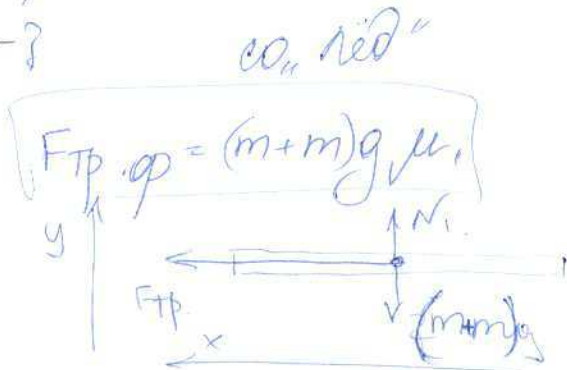 -3
со „лёд"
Fтр.ф = (m+m)g μ₁
y
N₁.
Fтр.
(m+m)g
x